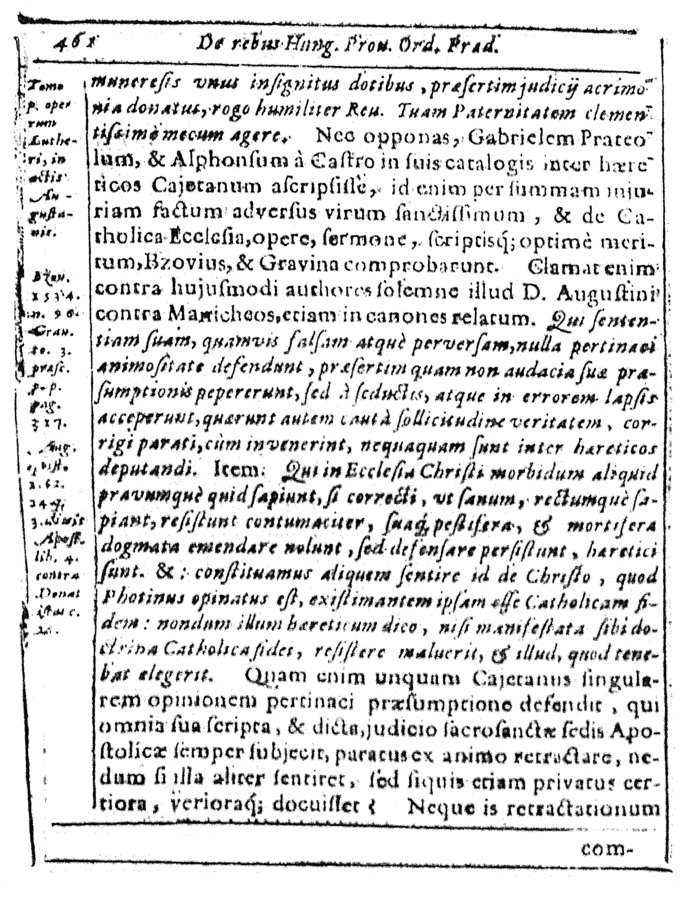 461 De rebus Hung. Prou. Ord. Præd.
muneresis vnus insignitus dotibus, præsertim judicij acrimo-
nia donatus, rogo humiliter Reu. Tuam Paternitatem clemen-
tissimè mecum agere. Nec opponas, Gabrielem Prateo-
lum, & Alphonsum à Castro in suis catalogis inter hære-
ticos Cajetanum ascripsisse, id enim per summam inju-
riam factum adversus virum sanctissimum, & de Ca-
tholica Ecclesia, opere, sermone, scriptisq; optimè meri-
tum, Bzovius, & Gravina comprobarunt. Clamat enim
contra hujusmodi authores solemne illud D. Augustini
contra Manicheos, etiam in canones relatum. Qui senten-
tiam suam, quamvis falsam atquè perversam, nulla pertinaci
animositate defendunt, præsertim quam non audacia suæ præ-
sumptionis pepererunt, sed à seductis, atque in errorem lapsis
acceperunt, quærunt autem cautâ sollicitudine veritatem, cor-
rigi parati, cùm invenerint, nequaquam sunt inter hæreticos
deputandi. Item: Qui in Ecclesia Christi morbidum aliquid
pravumquè quid sapiunt, si correcti, vt sanum, rectumquè sa-
piant, resistunt contumaciter, suaq; pestifera, & mortifera
dogmata emendare nolunt, sed defensare persistunt, hæretici
sunt. &: constituamus aliquem sentire id de Christo, quod
Photinus opinatus est, existimantem ipsam esse Catholicam fi-
dem: nondum illum hæreticum dico, nisi manifestata sibi do-
ctrina Catholicæ fidei, resistere maluerit, & illud, quod tene-
bat elegerit. Quam enim unquam Cajetanus singula-
rem opinionem pertinaci præsumptione defendit, qui
omnia sua scripta, & dicta, judicio sacrosanctæ sedis Apo-
stolicæ semper subjecit, paratus ex animo retractare, ne-
dum si illa aliter sentiret, sed siquis etiam privatus cer-
tiora, verioraq; docuisset? Neque is retractationum
com-
Tomo
p. oper
rum
Luthe-
ri, in
actis
Au-
gusta-
nis.
Bzou.
1534.
n. 96.
Grau.
to. 3.
præsc.
p. p.
pag.
317.
Aug.
epist.
162.
24 q.
3. dixit
Apost.
lib. 4.
contra
Donat
istas c.